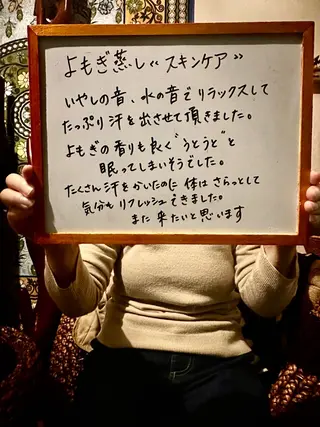 よもぎ蒸し《スキンケア》
いやしの音、水の音でリラックスして
たっぷり汗を出させて頂きました。
よもぎの香りも良く"うとうと"と
眠ってしまいそうでした。
たくさん汗をかいたのに体はさらっとして
気分もリフレッシュできました。
また来たいと思います